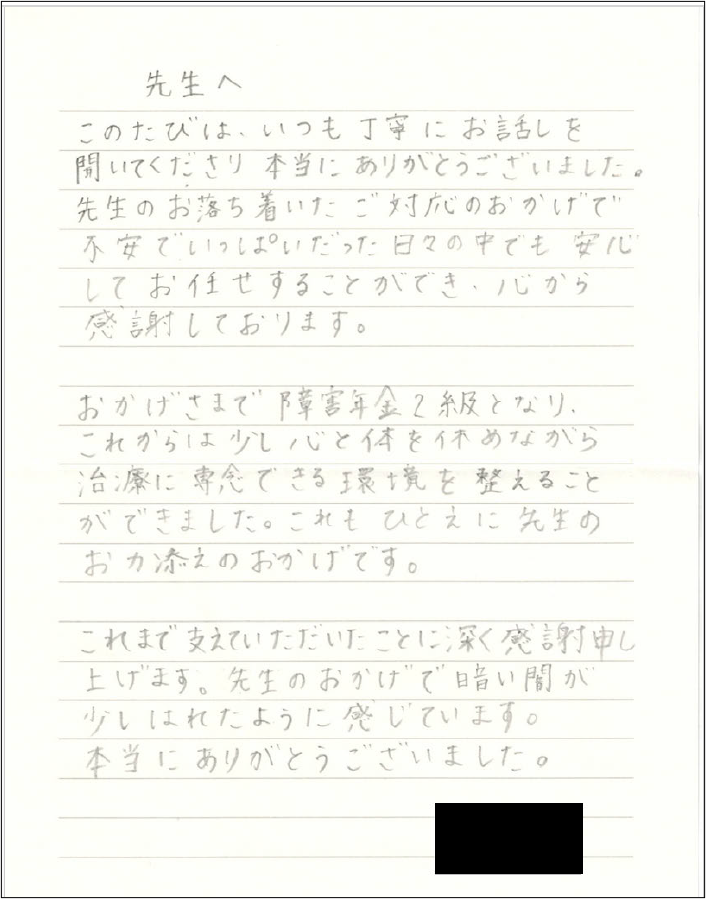 先生へ
このたびは、いつも丁寧にお話しを
聞いてくださり本当にありがとうございました。
先生のお落ち着いたご対応のおかげで
不安でいっぱいだった日々の中でも安心
してお任せすることができ、心から
感謝しております。
おかげさまで障害年金2級となり、
これからは少し心と体を休めながら
治療に専念できる環境を整えること
ができました。これもひとえに先生の
お力添えのおかげです。
これまで支えていただいたことに深く感謝申し
上げます。先生のおかげで暗い闇が
少しはれたように感じています。
本当にありがとうございました。